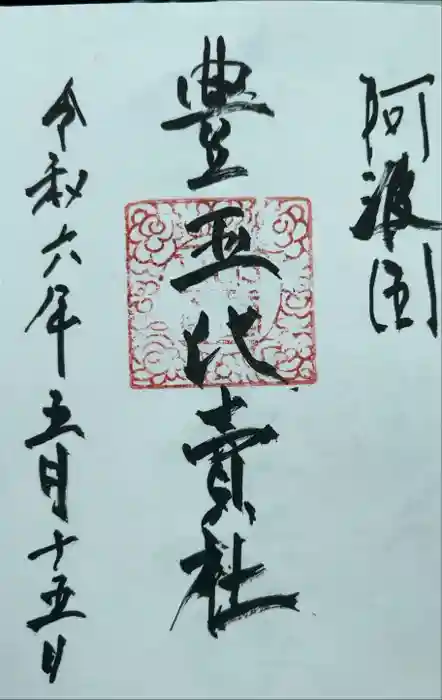 阿波国
豊玉比賣社
令和六年五月十五日